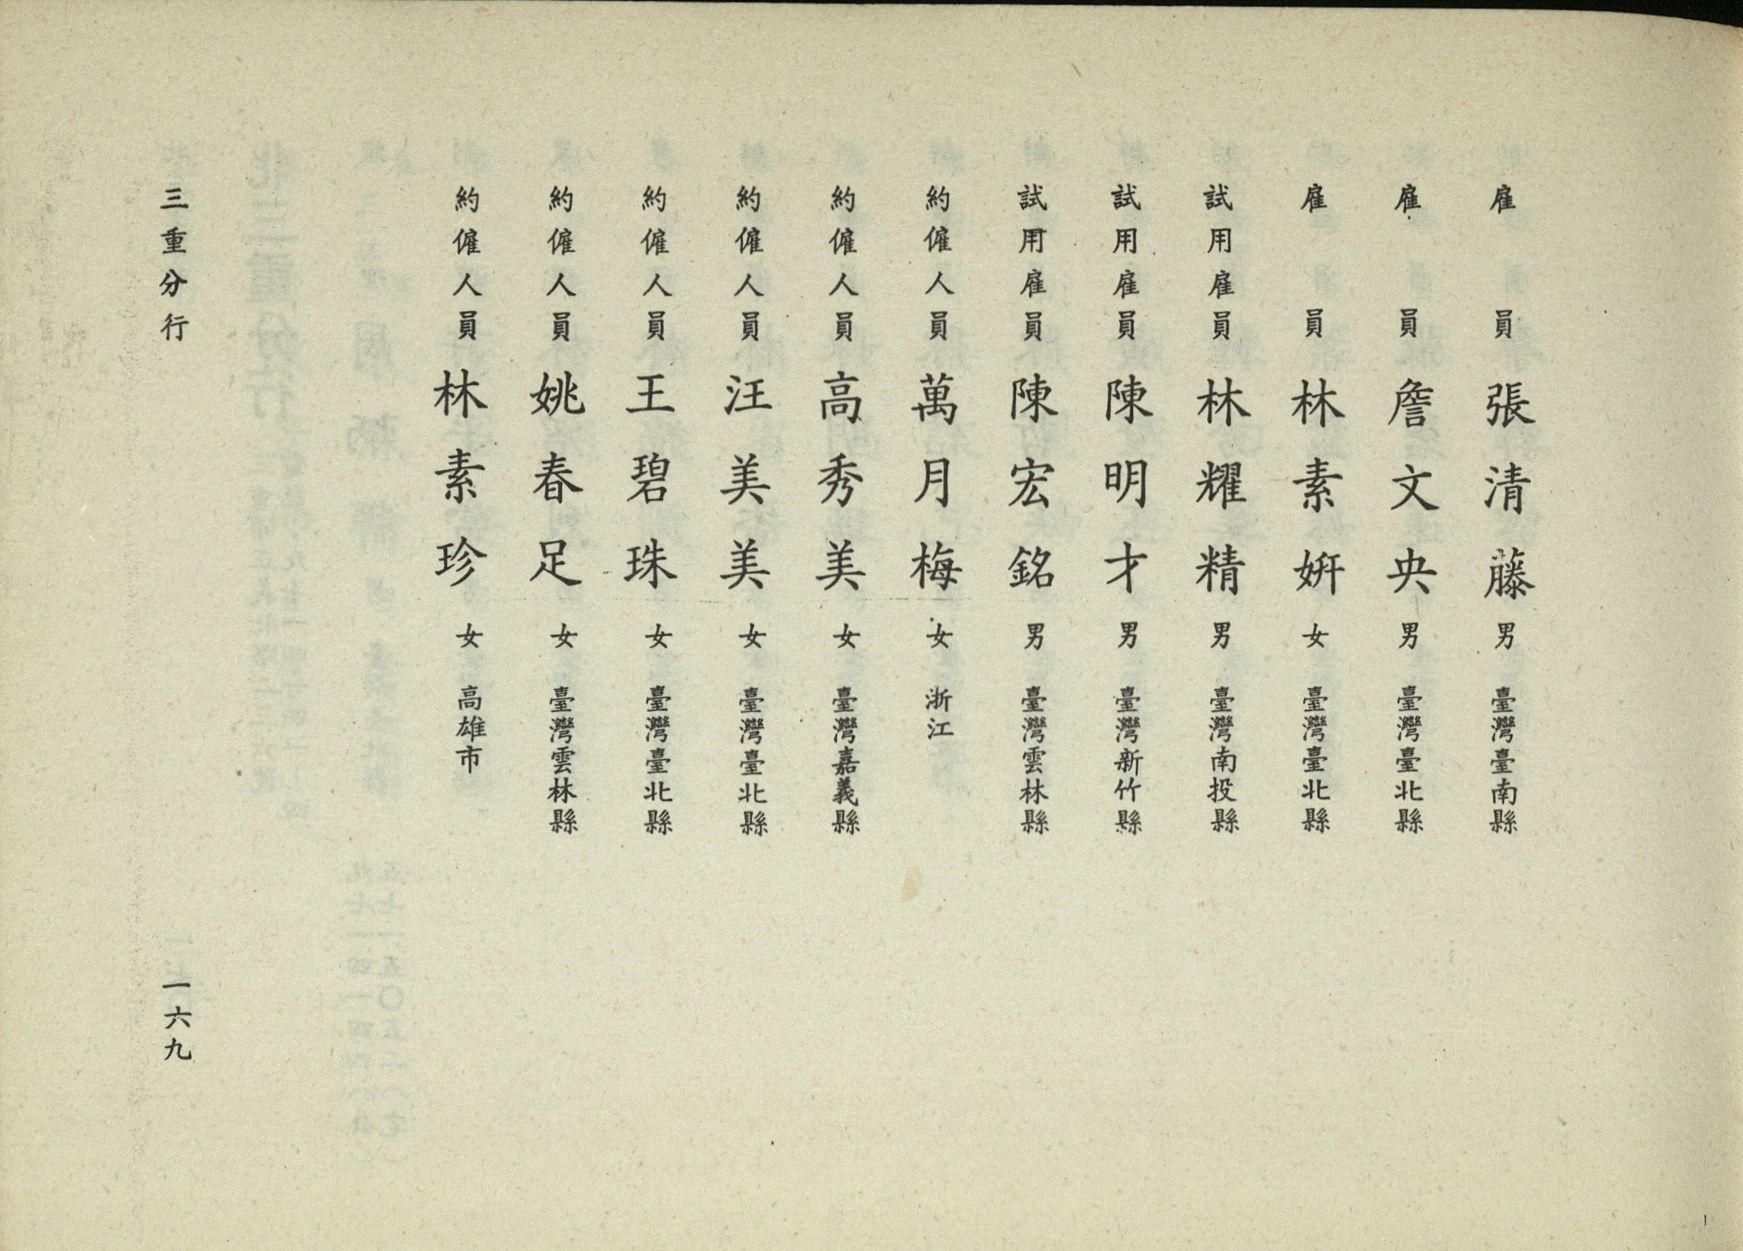 雇員 張清藤 男 臺灣臺南縣
雇員 詹文央 男 臺灣臺北縣
雇員 林素妍 女 臺灣臺北縣
試用雇員 林耀精 男 臺灣南投縣
試用雇員 陳明才 男 臺灣新竹縣
試用雇員 陳宏銘 男 臺灣雲林縣
約僱人員 萬月梅 女 浙江
約僱人員 高秀美 女 臺灣嘉義縣
約僱人員 汪美美 女 臺灣臺北縣
約僱人員 王碧珠 女 臺灣臺北縣
約僱人員 姚春足 女 臺灣雲林縣
約僱人員 林素珍 女 高雄市
三重分行 一六九